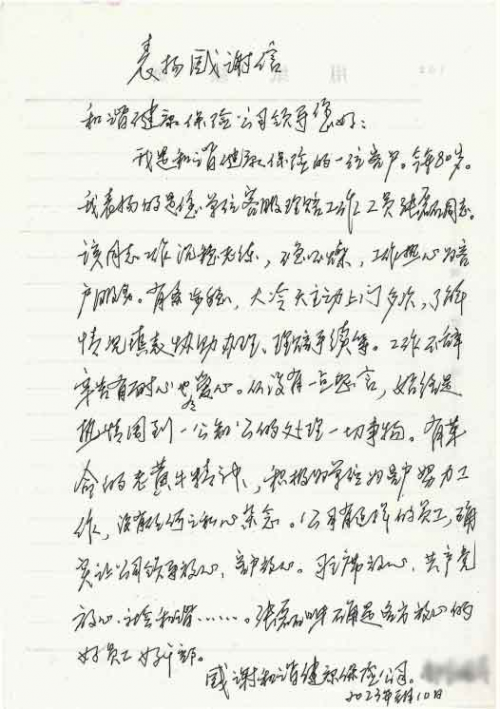 表扬感谢信
和谐健康保险公司领导您好：
我是和谐健康保险的一位客户。今年80岁。
我表扬的是您单位客服理赔工作人员张磊同志。
该同志工作沉稳老练，不急不燥，工作热心为客
户服务。有条步骤，大冷天主动上门多次，了解
情况填表协助办理、理赔手续等。工作不辞
辛苦有耐心也有爱心。从没有一点怨言，始终是
热情周到一公和公的处理一切事物。有革
命的老黄牛精神，积极为单位为客户努力工
作，没有任何之私心杂念。公司有这样的员工，确
实让公司领导放心，客户放心。主席放心，共产党
放心社会和谐……。张磊的确是各方放心的
好员工好干部。
感谢和谐健康保险公司。
2023年 月10日